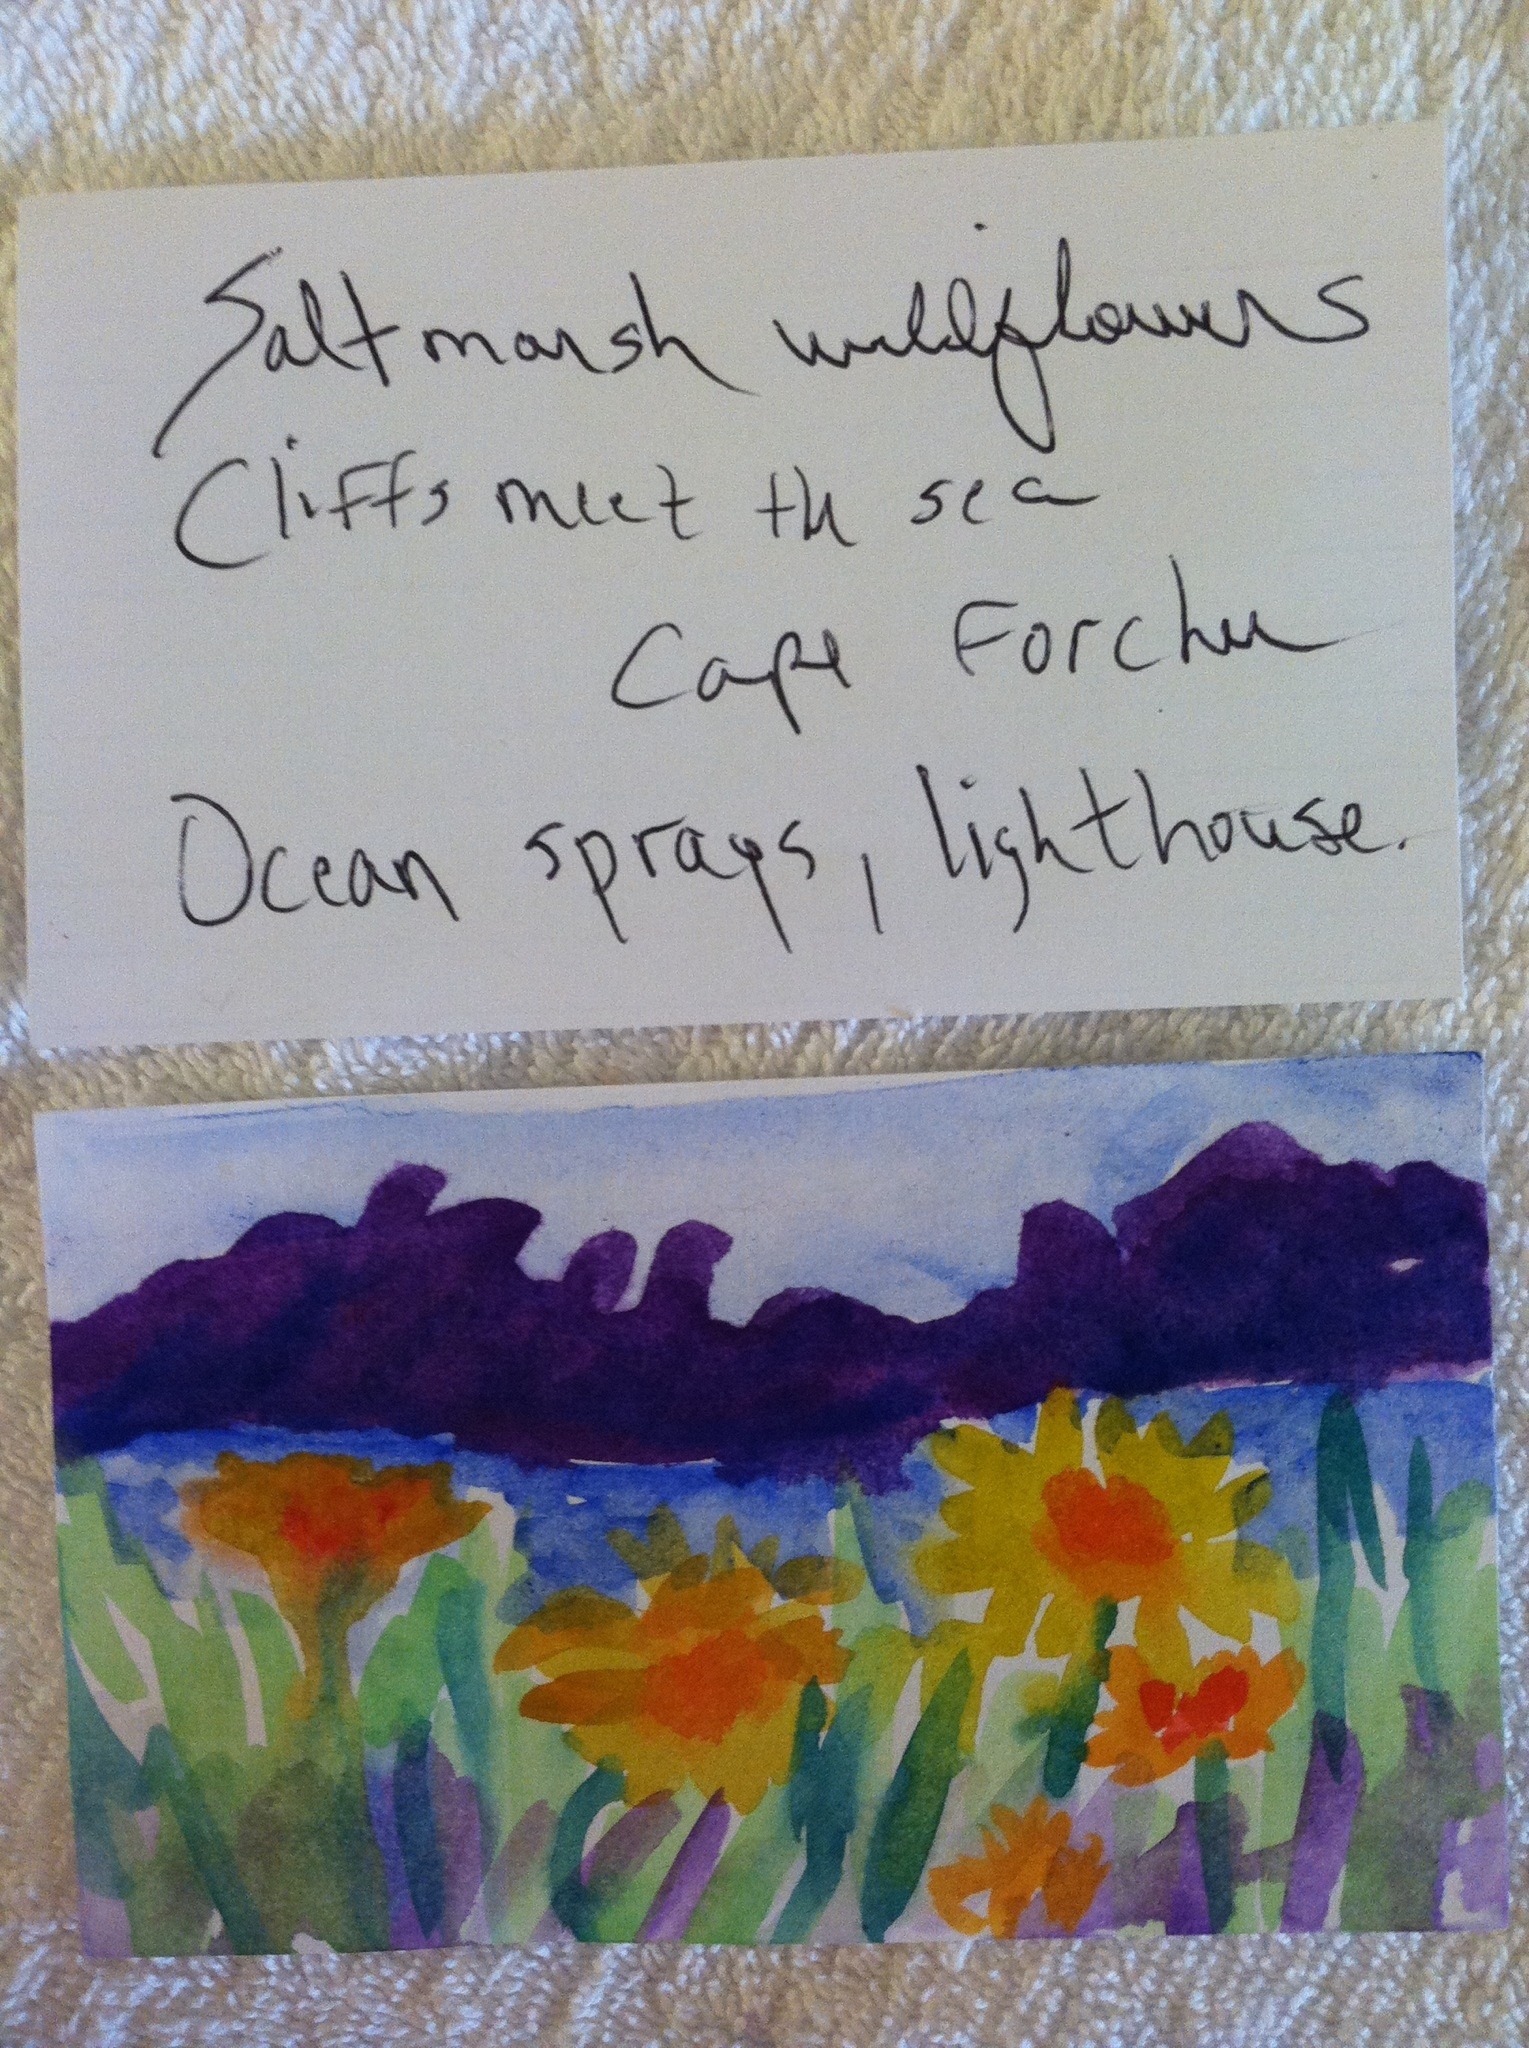 Salt marsh wildflowers
Cliffs meet the sea
Cape Forchu
Ocean sprays, lighthouse.